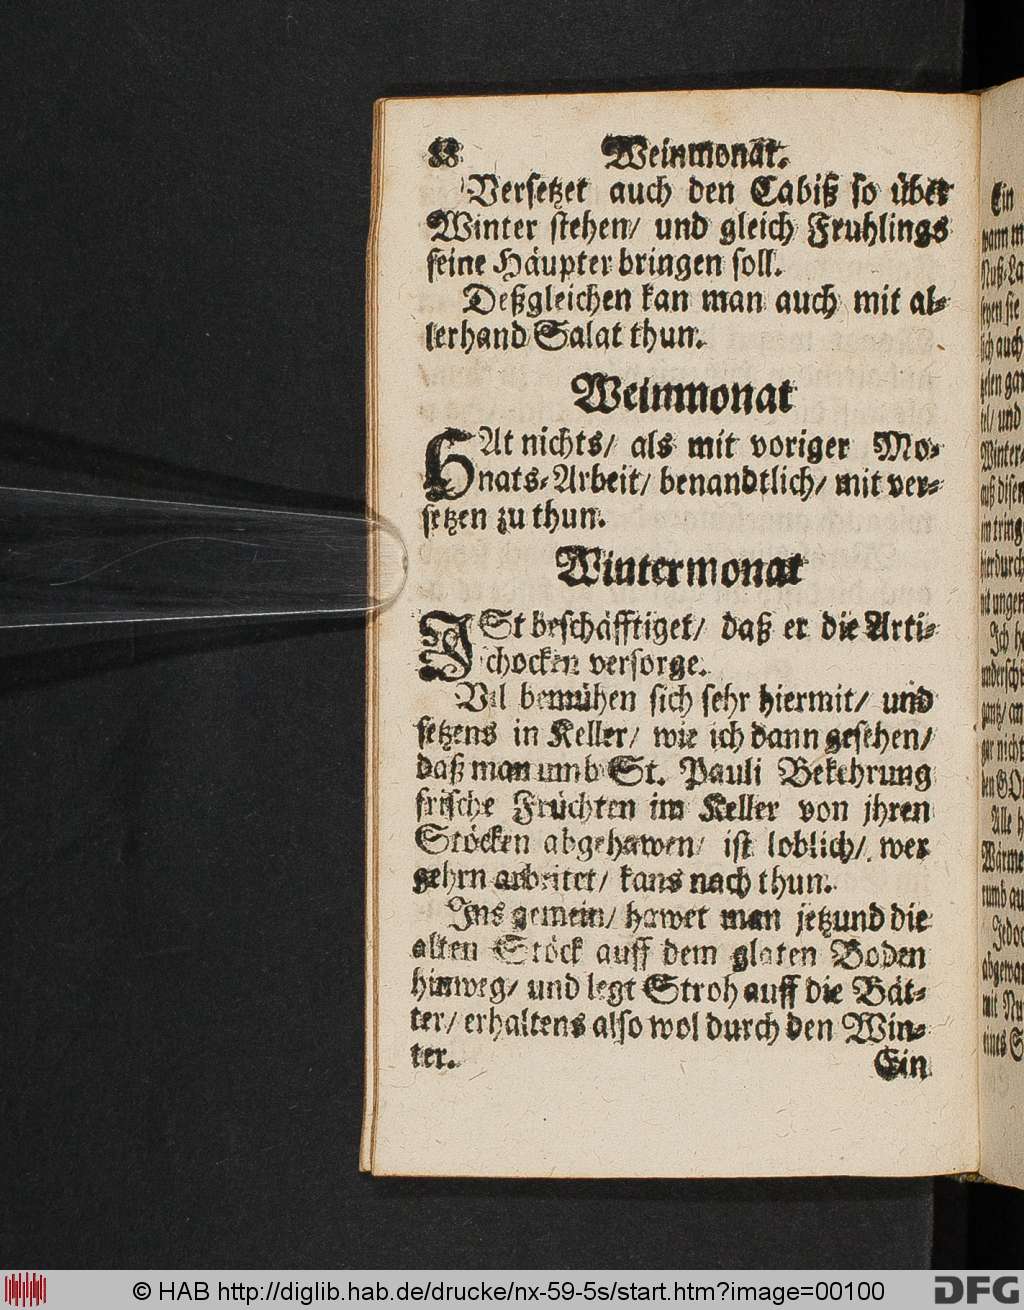 88 Weinmonat.
Versetzet auch den Cabiß so über
Winter stehen/ und gleich Fruhlings
seine Häupter bringen soll.
Deßgleichen kan man auch mit al-
lerhand Salat thun.
Weinmonat
HAt nichts/ als mit voriger Mo-
nats-Arbeit/ benandtlich/ mit ver-
setzen zu thun.
Wintermonat
ISt beschäfftiget/ daß er die Arti-
schocken versorge.
Vil bemühen sich sehr hiermit/ und
setzens in Keller/ wie ich dann gesehen/
daß man umb St. Pauli Bekehrung
frische Früchten im Keller von jhren
Stöcken abgehawen/ ist loblich/ wer
gehrn arbeitet/ kans nach thun.
Ins gemein/ hawet man jetzund die
alten Stöck auff dem glaten Boden
hinweg/ und legt Stroh auff die Bät-
ter/ erhaltens also wol durch den Win-
ter.
Ein
Ein
wann m
Nuß-La
lich auch
und
Winter-
auß disem
hierdurch
Ich h
gar nicht
Alle h
Wärme
rumb au
Jedoc
mit Nu
eines S
© HAB http://diglib.hab.de/drucke/nx-59-5s/start.htm?image=00100
DFG